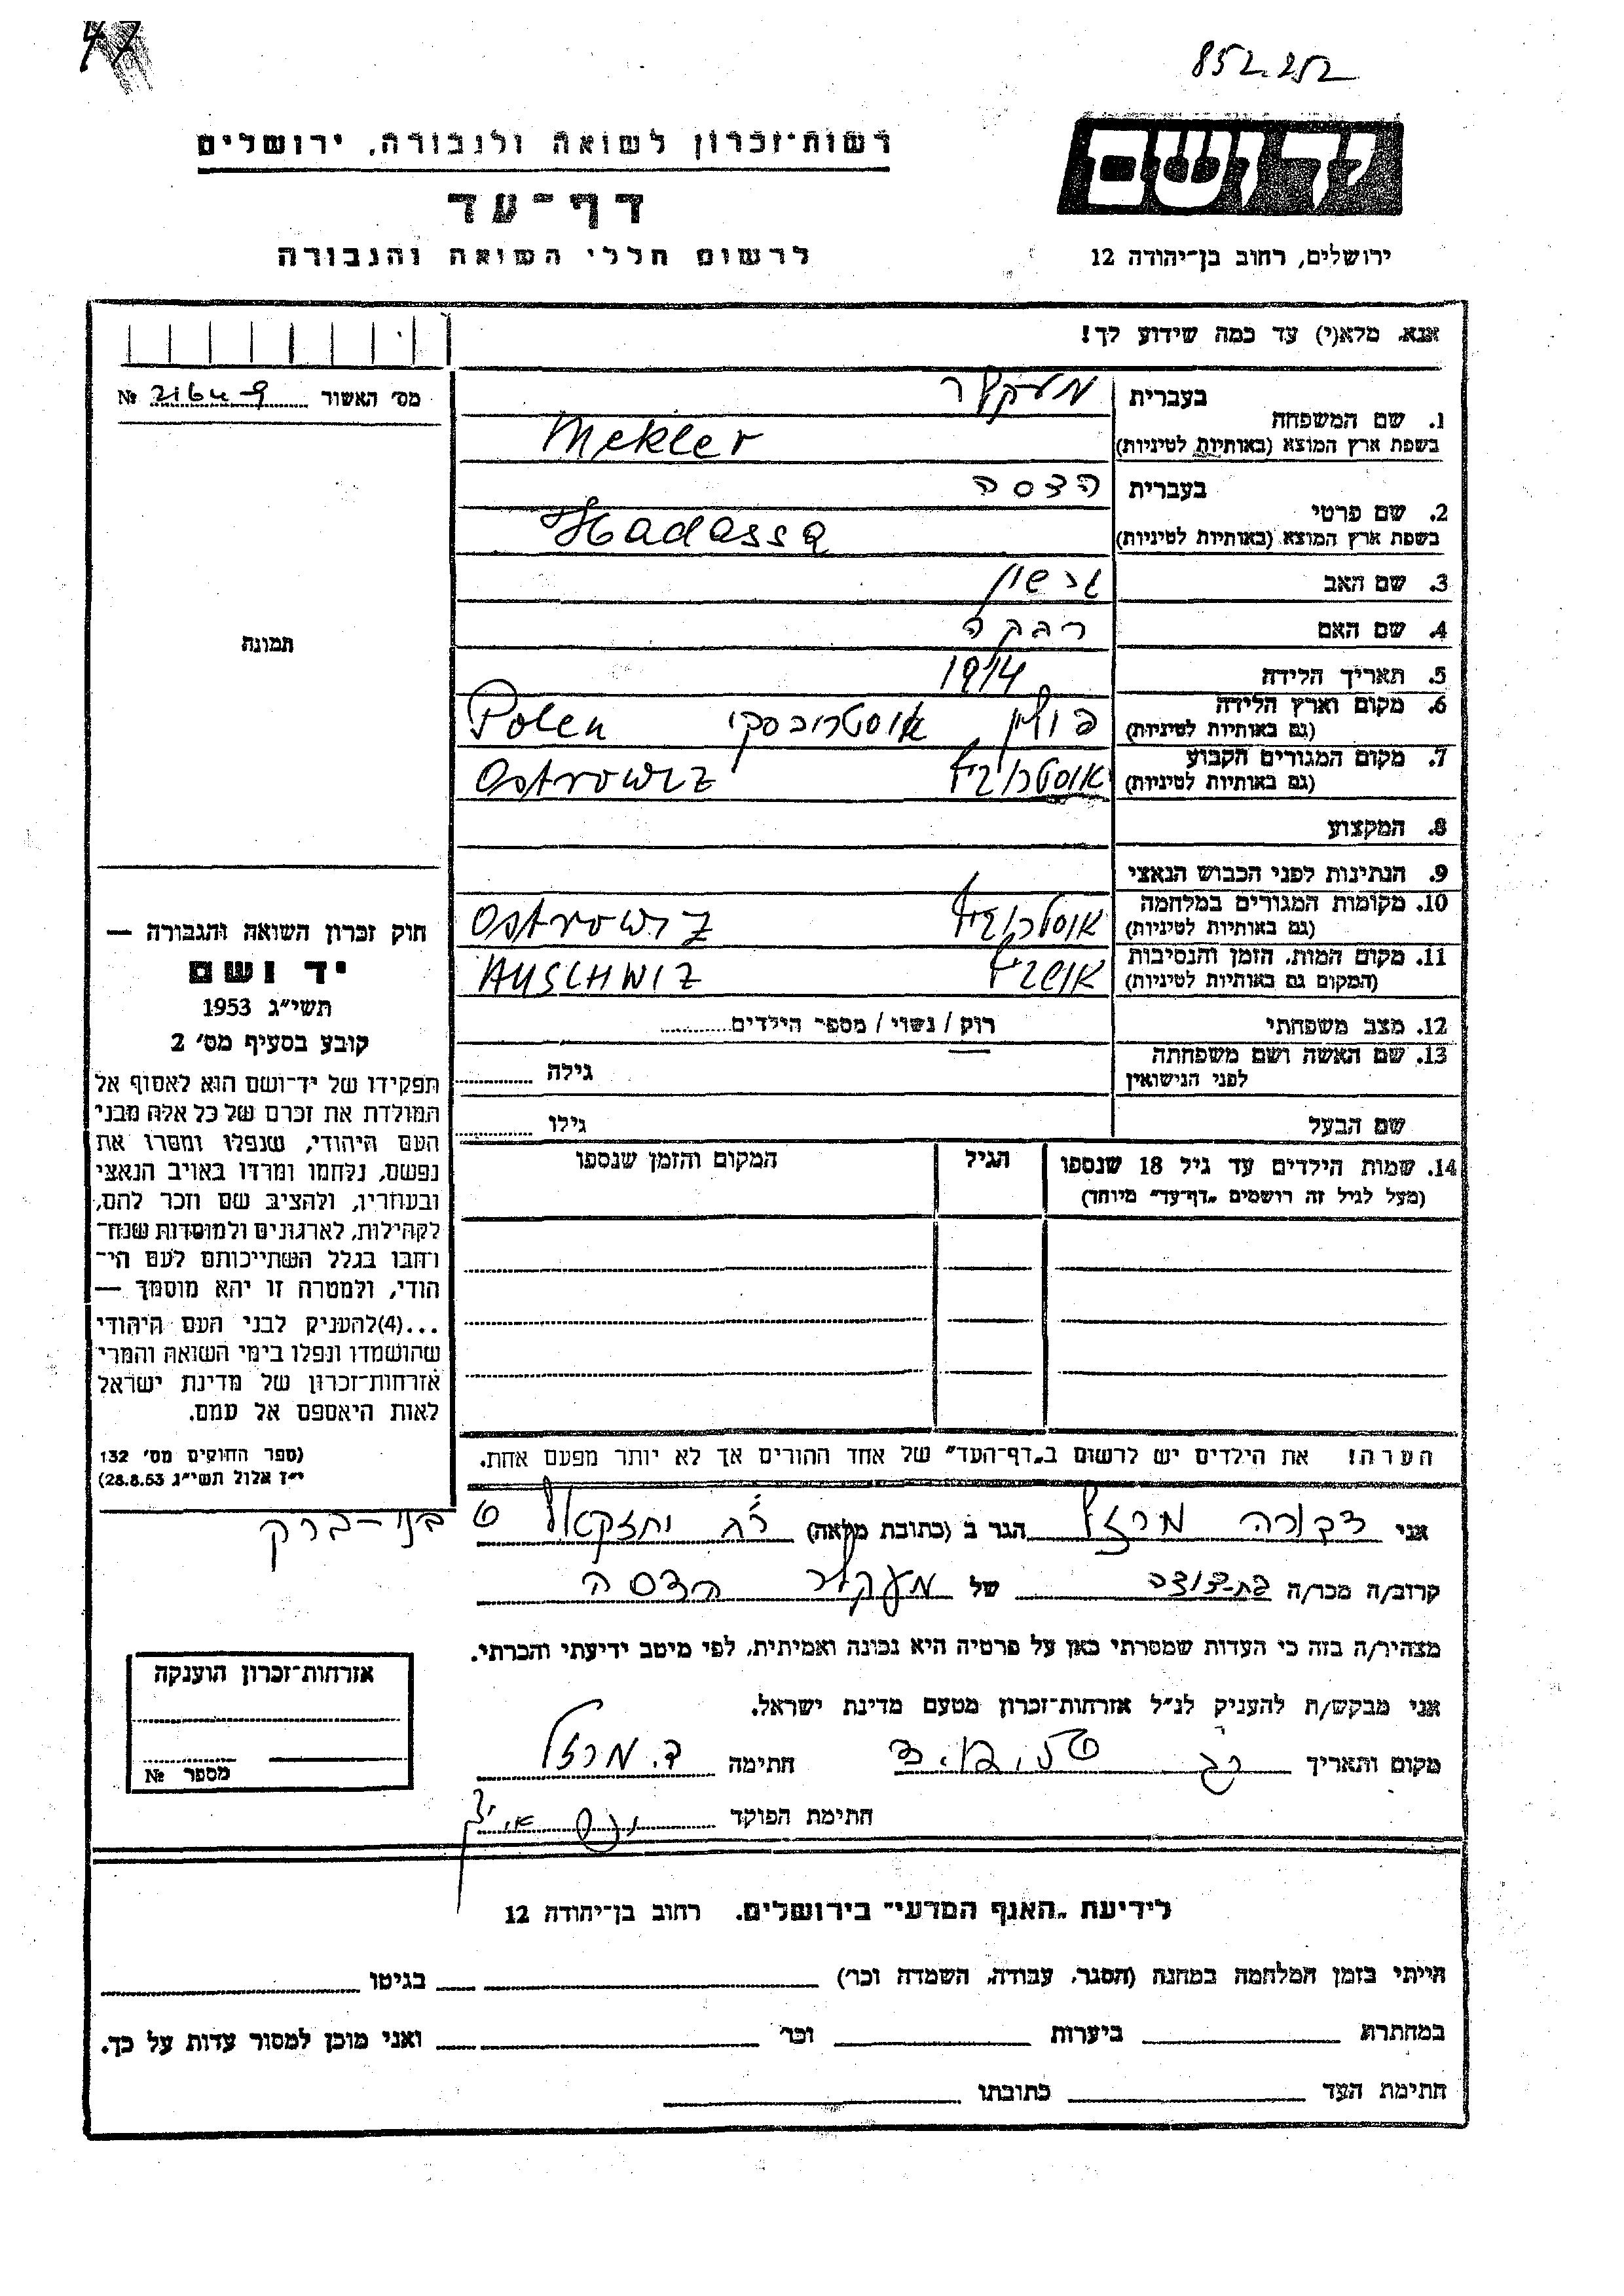 47
852.252
רשות־זכרון לשואה ולגבורה, ירושלים
דף־עד
לרשום חללי השואה והגבורה
יד ושם
ירושלים, רחוב בן־יהודה 12
אנא, מלא(י) עד כמה שידוע לך!
מס׳ האשור № 
1. שם המשפחה בעברית מעקלר
בשפת ארץ המוצא (באותיות לטיניות) Mekler
2. שם פרטי בעברית הדסה
בשפת ארץ המוצא (באותיות לטיניות) Hadassa
3. שם האב גרשון
4. שם האם רבקה
5. תאריך הלידה 1914
6. מקום וארץ הלידה (גם באותיות לטיניות) פולין Polen
7. מקום המגורים הקבוע (גם באותיות לטיניות) אוסטרוביץ Ostrowiz
8. המקצוע
9. הנתינות לפני הכבוש הנאצי
10. מקומות המגורים במלחמה (גם באותיות לטיניות) אוסטרוביץ Ostrowiz
11. מקום המות, הזמן והנסיבות (המקום גם באותיות לטיניות) אושביץ AUSCHWIZ
12. מצב משפחתי רוק / נשוי / מספר הילדים
13. שם האשה ושם משפחתה לפני הנישואין גילה
שם הבעל גילו
14. שמות הילדים עד גיל 18 שנספו הגיל המקום והזמן שנספו
(מעל לגיל זה רושמים „דף־עד״ מיוחד)
הערה! את הילדים יש לרשום ב„דף־העד״ של אחד ההורים אך לא יותר מפעם אחת.
תמונה
חוק זכרון השואה והגבורה —
יד ושם
תשי״ג 1953
קובע בסעיף מס׳ 2
תפקידו של יד־ושם הוא לאסוף אל
המולדת את זכרם של כל אלה מבני
העם היהודי, שנפלו ומסרו את
נפשם, נלחמו ומרדו באויב הנאצי
ובעוזריו, ולהציב שם וזכר להם,
לקהילות, לארגונים ולמוסדות שנח־
רבו בגלל השתייכותם לעם הי־
הודי, ולמטרה זו יהא מוסמך —
...(4)להעניק לבני העם היהודי
שהושמדו ונפלו בימי השואה והמרי
אזרחות־זכרון של מדינת ישראל
לאות היאספם אל עמם.
(ספר החוקים מס׳ 132
י״ז אלול תשי״ג 28.8.53)
אני דבורה הגר ב (כתובת מלאה) יחזקאל בני-ברק
קרוב/ה מכר/ה בת-דודה של מעקלר הדסה
מצהיר/ה בזה כי העדות שמסרתי כאן על פרטיה היא נכונה ואמיתית, לפי מיטב ידיעתי והכרתי.
אני מבקש/ת להעניק לנ״ל אזרחות־זכרון מטעם מדינת ישראל.
מקום ותאריך חתימה
חתימת הפוקד
אזרחות־זכרון הוענקה
מספר №
לידיעת „האגף המדעי״ בירושלים, רחוב בן־יהודה 12
הייתי בזמן המלחמה במחנה (הסגר, עבודה, השמדה וכר׳) בגיטו
במחתרת ביערות וכר׳ ואני מוכן למסור עדות על כך.
חתימת העד כתובתו